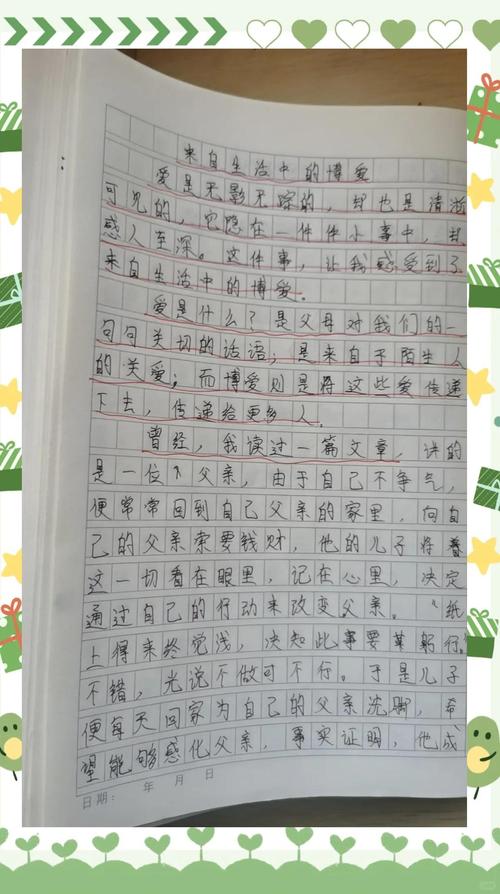 来自生活中的博爱
爱是无影无踪的，却也是清晰
可见的，它隐在一件件小事中，却
感人至深。这件事，让我感受到了
来自生活中的博爱。
爱是什么？是父母对我们的一
句句关切的话语；是来自于陌生人
的关爱；而博爱则是将这些爱传递
下去，传递给更多人。
曾经，我读过一篇文章，讲的
是一位父亲，由于自己不争气，
便常常回到自己父亲的家里，向自
己的父亲索要钱财，他的儿子将
这一切看在眼里，记在心里，决定
通过自己的行动来改变父亲。“纸
上得来终觉浅，决知此事要躬行。”
不错，光说不做可不行。于是儿子
便每天回家为自己的父亲洗脚，希
望能够感化父亲，事实证明，他成
日期： 年 月 日